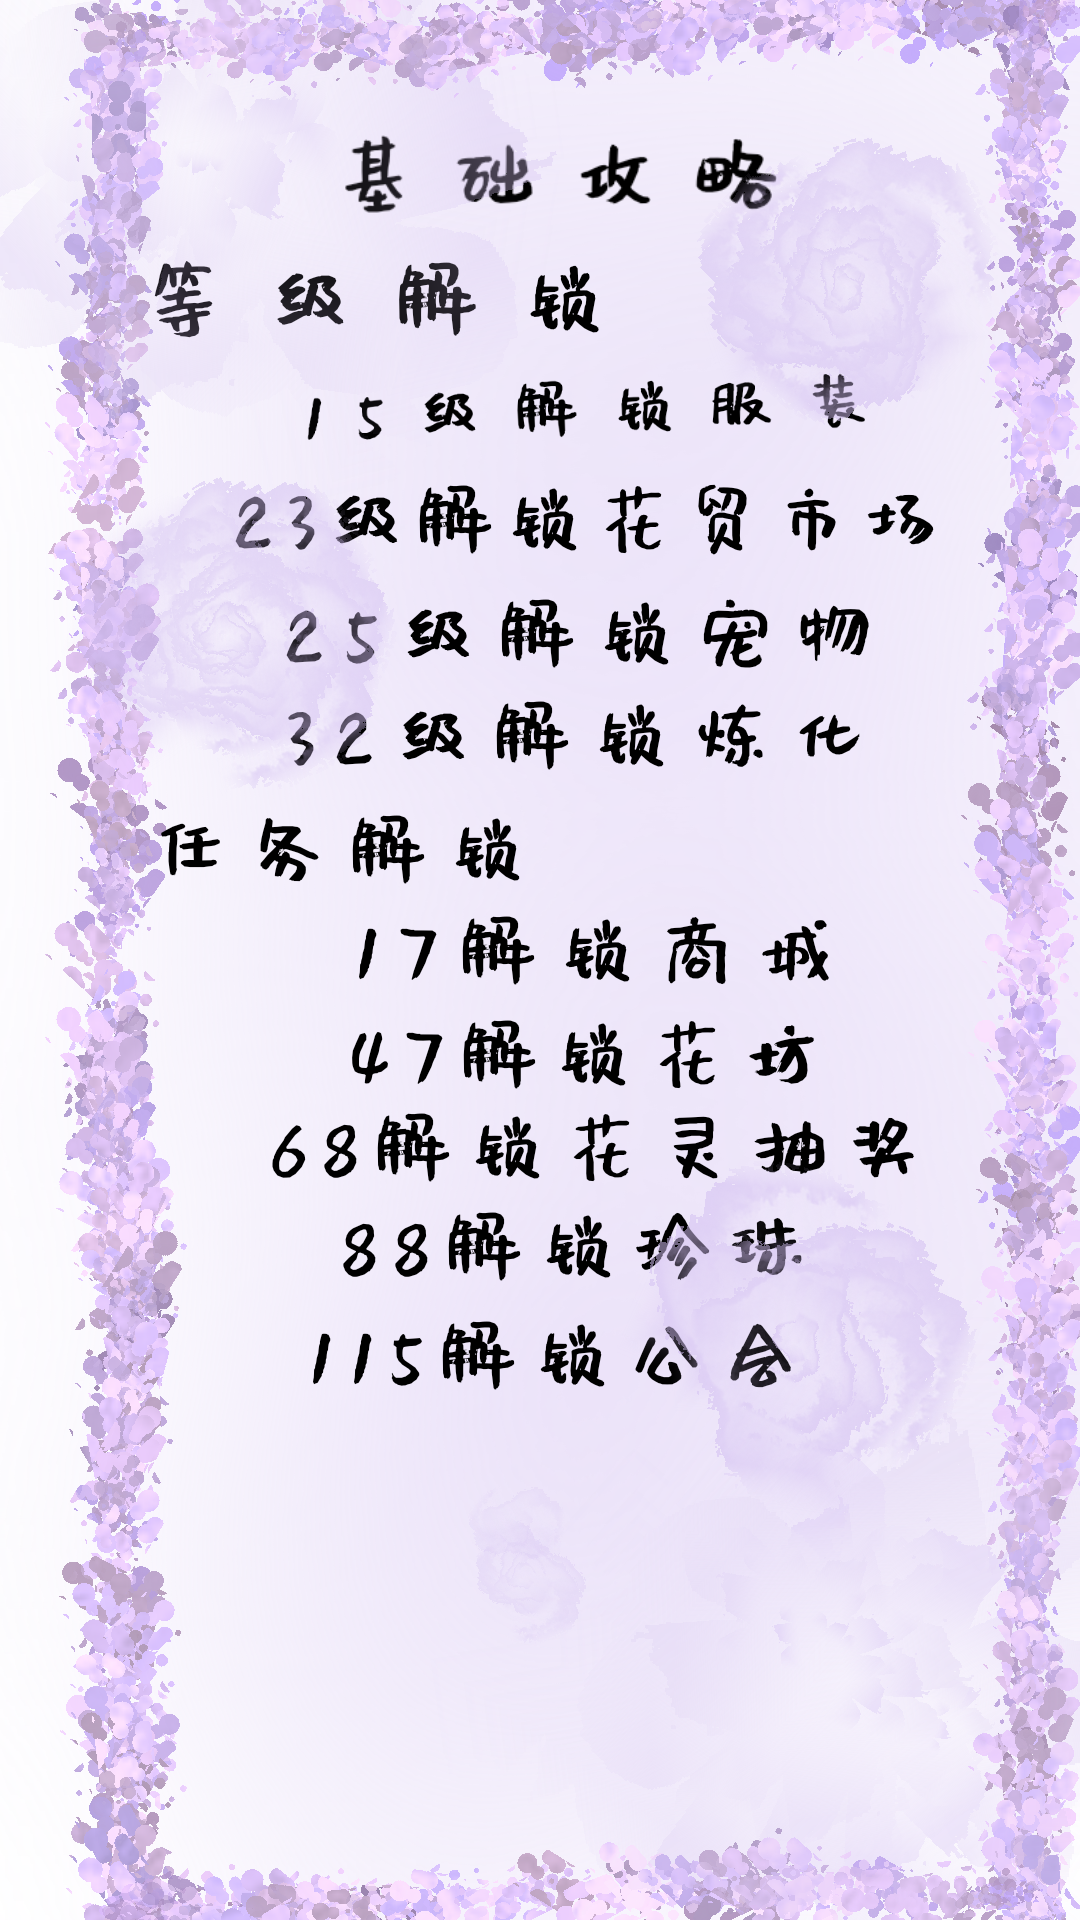 基础攻略
等级解锁
15级解锁服装
23级解锁花贸市场
25级解锁宠物
32级解锁炼化
任务解锁
17解锁商城
47解锁花坊
68解锁花灵抽奖
88解锁珍珠
115解锁公会